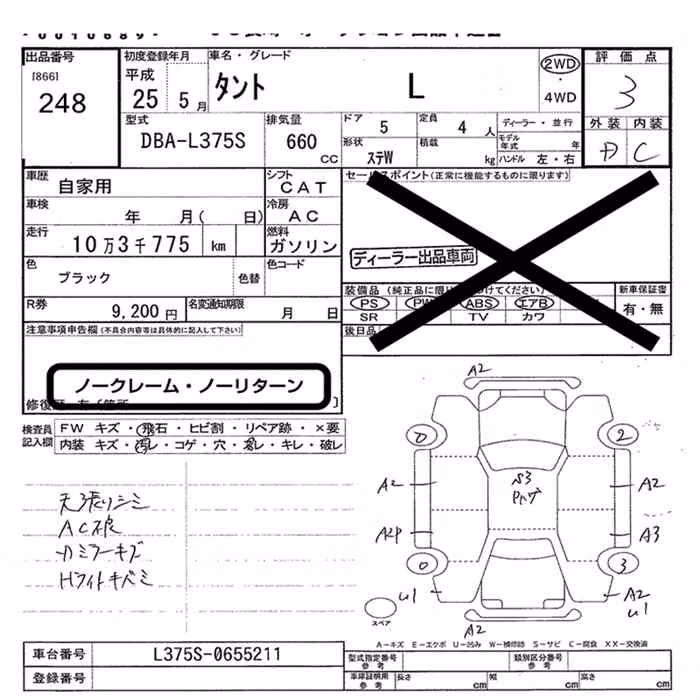 出品番号
[866]
248
初度登録年月
平成
25 5月
車名・グレード
タント L
2WD
・
4WD
評価点
3
外装 内装
D C
型式
DBA-L375S
排気量
660
CC
ドア
5
定員
4 人
ディーラー・並行
モデル年式 年
形状
ステW
積載
kg
ハンドル 左・右
車歴
自家用
シフト
CAT
セールスポイント(正常に機能するものに限ります)
車検
年 月( 日)
冷房
AC
走行
10万3千775 km
燃料
ガソリン
ディーラー出品車両
色
ブラック
色替
色コード
装備品
PS PW ABS エアB
SR TV カワ
新車保証書
有・無
R券
9,200 円
名変通知期限
月 日
後日品
注意事項申告欄(不具合内容等は具体的に記入して下さい)
ノークレーム・ノーリターン
検査員記入欄
FW キズ・飛石・ヒビ割・リペア跡・×要
内装 キズ・汚レ・コゲ・穴・スレ・キレ・破レ
天張りシミ
ミラーキズ
A2
0 2
A2 S3 A2
A2P A3
0 3
U1 A2
U1
スペア
A2
A-キズ E-エクボ U-凹み W-補修跡 S-サビ C-腐食 XX-交換済
車台番号
L375S-0655211
登録番号
型式指定番号
参考
類別区分番号
参考
車庫証明用
参考
長さ cm 幅 cm 高さ cm